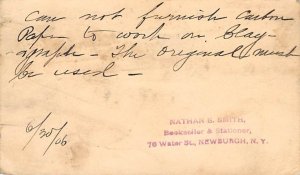 Can not furnish Carbon
Paper to work on Clay-
-graph - The original must
be used -
6/30/06
NATHAN S. SMITH,
Bookseller & Stationer,
76 Water St., NEWBURGH, N. Y.